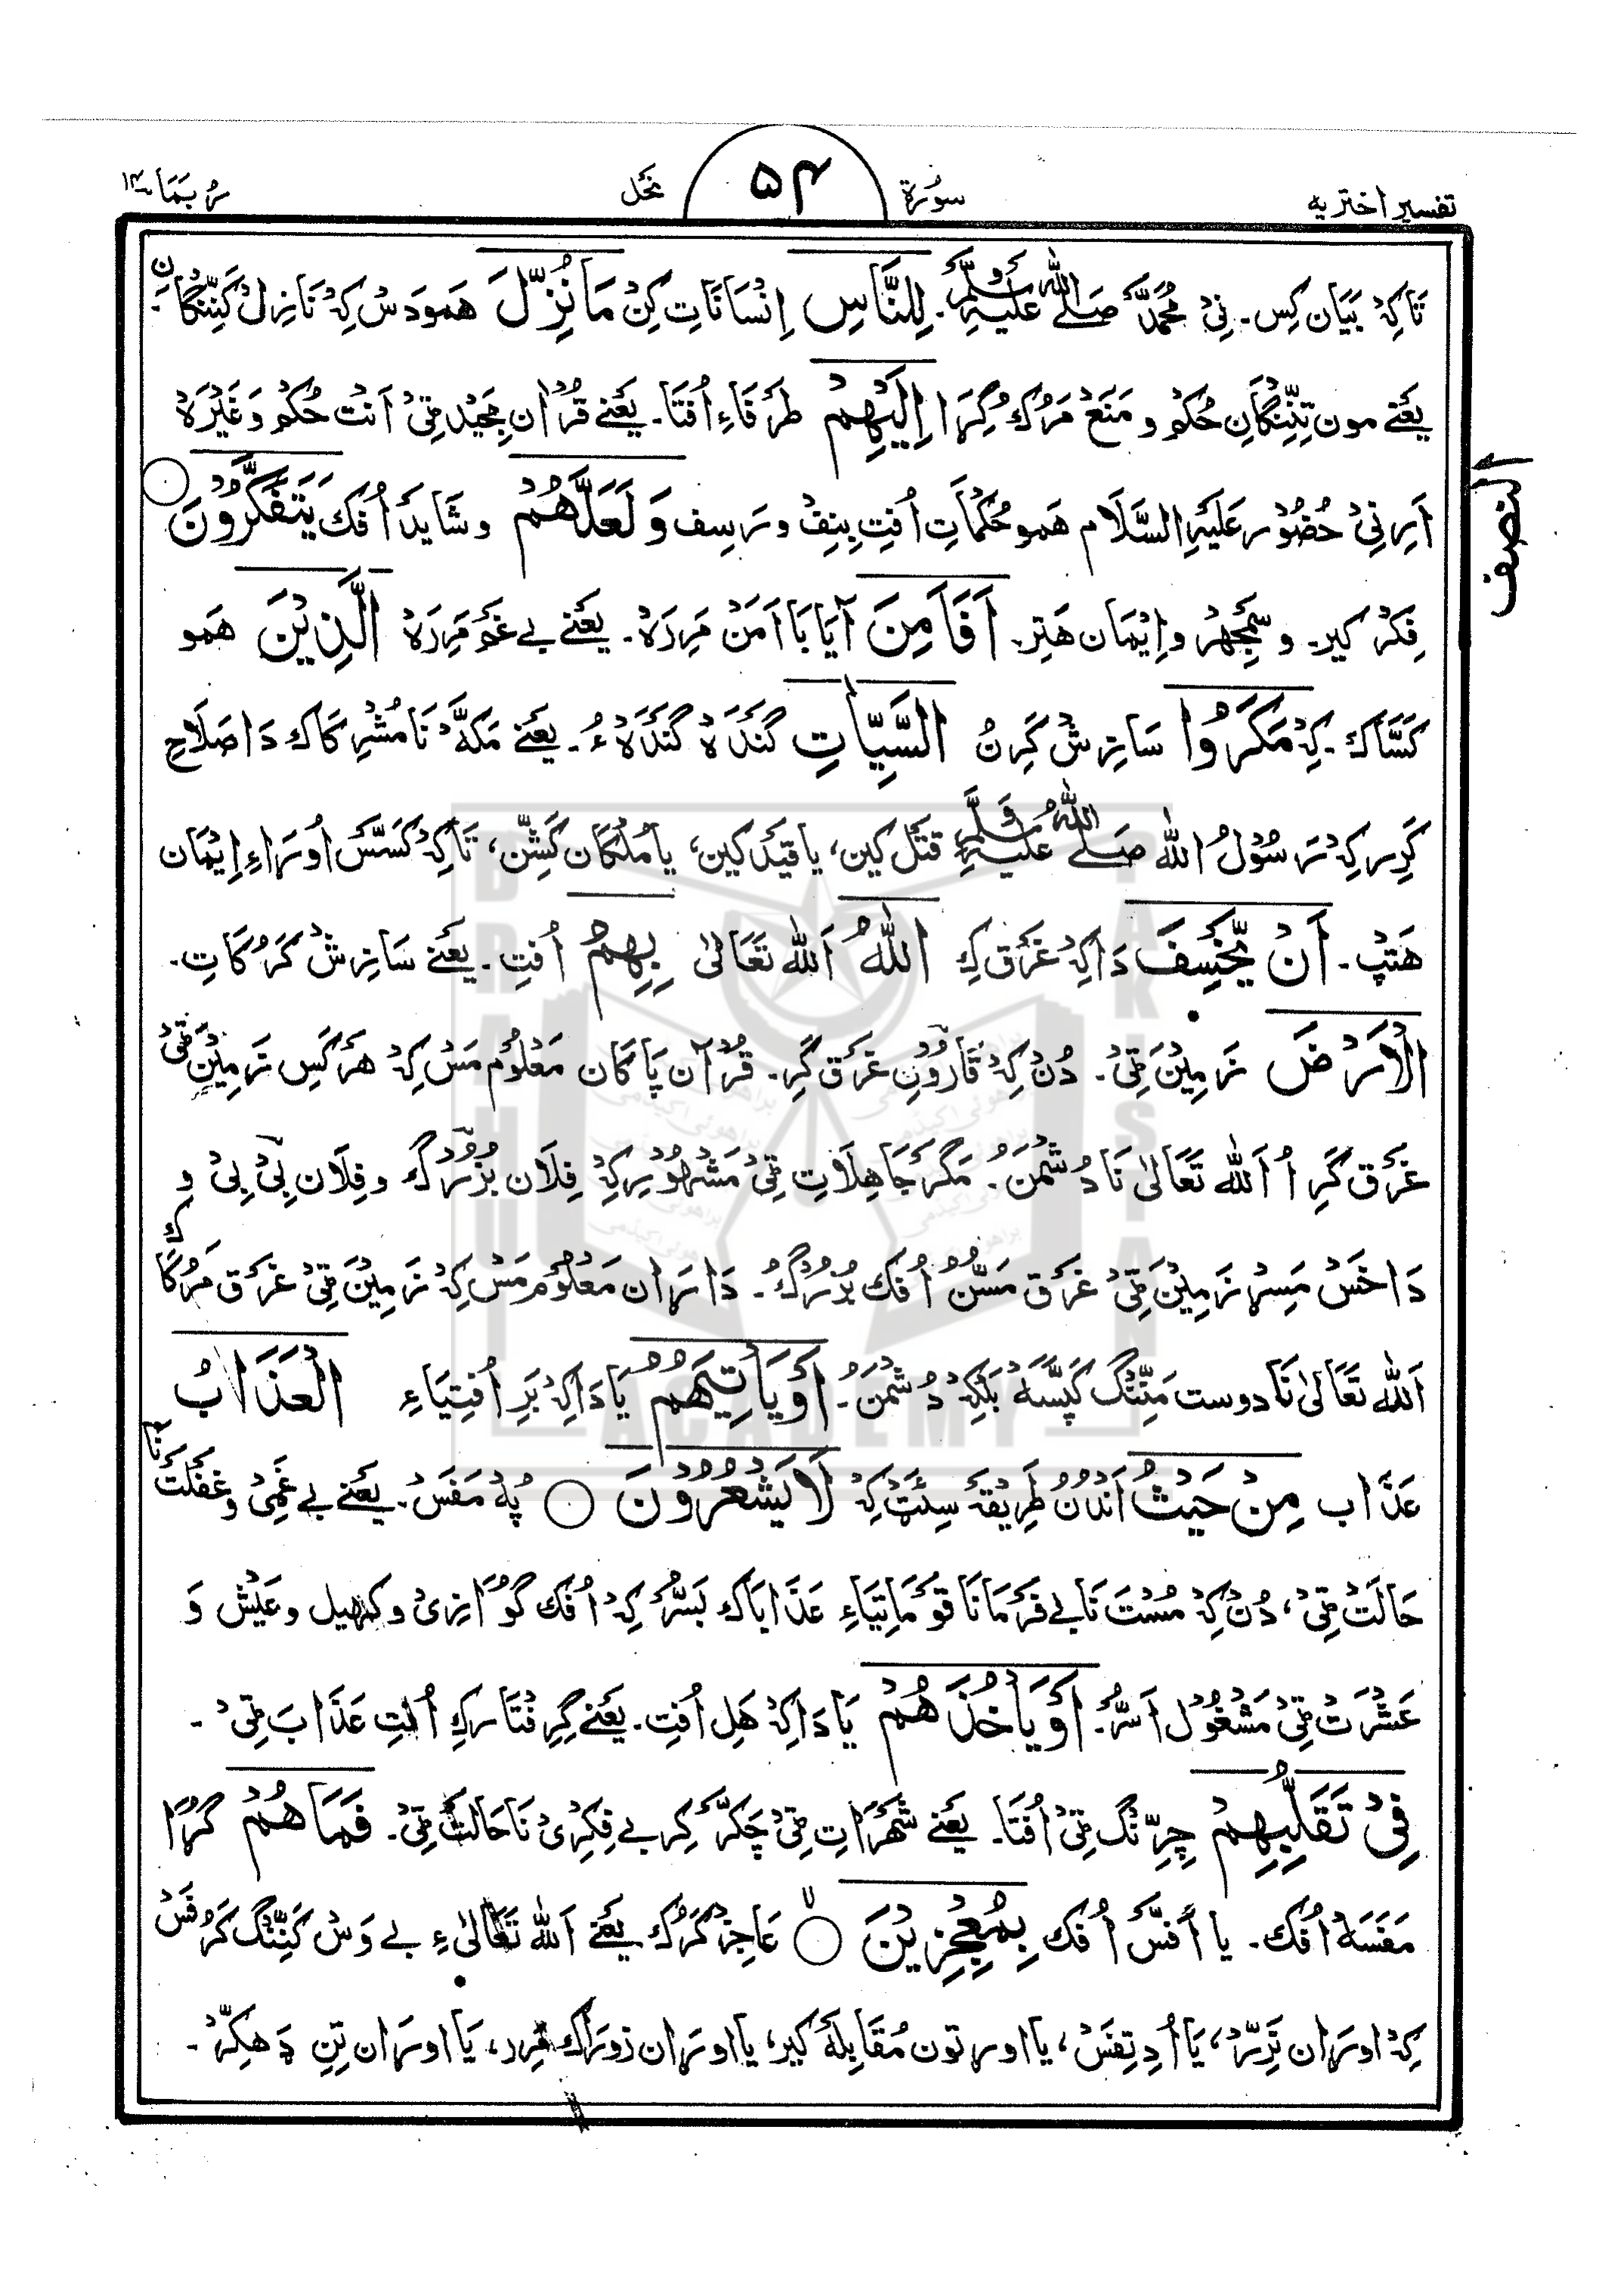 تفسیر اختریه
سورة
۵۴
نحل
رُبَمَا ۱۴
تَاکِہْ بَیَان کِس۔ نِیْ مُحَمَّدْ صَلَّے اللّٰه عَلَیْهِ وَسَلَّمَ۔ لِلنَّاسِ اِنْسَانَاتِ کِنْ مَا نُزِّلَ هَمودَسْ کِہْ نَازِلْ کَنِّنْگَانِ۔
یَعْنے مون تِنِّنْگَانِ حُکْم و مَنَعْ مَرُك گِرَا اِلَیْهِمْ طَرَفَاءِ اُفْتَا۔ یَعْنے قُرْاٰن مَجِیْد ٹِیْ اَنْت حُکْم وَغَیْرَہْ
اَرِ نِیْ حُضُوْر عَلَیْهِ السَّلَام هَمو حُکْمَاتِ اُفْتِ بِنِفْ و رَسِف وَ لَعَلَّهُمْ و شَایَد اُفْك یَتَفَكَّرُوْنَ ○
فِکَرْ کیر۔ و سَمْجِهرْ و اِیْمَان هَتِر۔ اَفَاَمِنَ آیَا بَا اَمَنْ مَرِرَہْ۔ یَعْنے بے غَم مَرِرَہْ الَّذِیْنَ هَمو
کَسَّاك۔ کِہْ مَکَرُوا سَازِشْ کَرِنُ السَّیِّاٰتِ گَنْدَہْ گَنْدَہْ ءُ۔ یَعْنے مَکَّہْ نَا مُشْرِکَاك دَا صَلَاحِ
کَرِر کِہْ رَسُوْلُ اللّٰه صَلَّے اللّٰهُ عَلَیْهِ وَسَلَّمَ قَتْل کین، یا قَیْد کین، یا مُلْکَان کَشِّن، تَاکِہْ کَسَّسْ اُوْرَاءِ اِیْمَان
هَتَپْ۔ اَنْ یَّخْسِفَ دَاکِہْ غَرْق کِ اللّٰهُ اَللّٰه تَعَالیٰ بِهِمُ اُفْتِ۔ یَعْنے سَازِشْ کَرُکَاتِ۔
الْاَرْضَ زَمِیْن ٹِیْ۔ دُنْ کِہْ قَارُوْنِ غَرْق کَرِ۔ قُرْآن پَاکَان مَعْلُوْم مَسْ کِہْ هَرکَسِ زَمِیْن ٹِیْ
غَرْق کَرِ اُ اَللّٰه تَعَالیٰ نَا دُشْمَنُ۔ مَگَر جَاهِلَاتِ ٹِیْ مَشْهُوْر کِہْ فِلَان بُزُرْگ و فِلَان بِیْ بِیْ وِ
دَاخَسْ مِسِر زَمِیْن ٹِیْ غَرْق مَسُّنُ اُفْك بُزُرْگُ۔ دَارَان مَعْلُوْم مَسْ کِہْ زَمِیْن ٹِیْ غَرْق مَرُکَاك
اَللّٰه تَعَالیٰ نَا دوست مَنِّنْگ کَپَسَّهْ بَلْکِہْ دُشْمَنُ۔ اَوْ یَاْتِیَهُمُ یَا دَاکِہْ بَرِ اُفْتِیَاءِ الْعَذَابُ
عَذَاب مِنْ حَیْثُ اَنْدُنُ طَرِیْقَہ سِیْٹ کِہْ لَا یَشْعُرُوْنَ ○ پُہْ مَفَسْ۔ یَعْنے بے غَمِیْ و غَفْلَتْ نَا
حَالَتْ ٹِیْ، دُنْ کِہْ مُسْت نَا بے فَرْمَانَا قَوْمَاتِیَاءِ عَذَابَاك بَسُّرُ کِہْ اُفْك گُوَازِیْ و کھیل و عَیْش وَ
عَشْرَتْ ٹِیْ مَشْغُوْل اَسُّرُ۔ اَوْ یَاْخُذَهُمْ یَا دَاکِہْ هَلِ اُفْتِ۔ یَعْنے گِرِفْتَار کِ اُفْتِ عَذَابَ ٹِیْ۔
فِیْ تَقَلُّبِهِمْ چَرِنْگ ٹِیْ اُفْتَا۔ یَعْنے شَهْرَاتِ ٹِیْ چَکَّر کِر بے فِکِرِیْ نَا حَالَتْ ٹِیْ۔ فَمَا هُمْ گُڑَا
مَفَسَهْ اُفْك۔ یا اُفَسْ اُفْك بِمُعْجِزِیْنَ ○ عَاجِزْ کَرُك یَعْنے اَللّٰه تَعَالیٰ ءِ بے وَسْ کَنِّنْگ کَرُفَسْ
کِہْ اورَان نَرِّرْ، یَا اُدِ تِفَسْ، یا اورتون مُقَابِلَهْ کیر، یا اورَان زورَاك مَرِر، یَا اورَان تِنِ ڈَهکِرْ۔
النصف
BRAHUI
ACADEMY
PAKISTAN